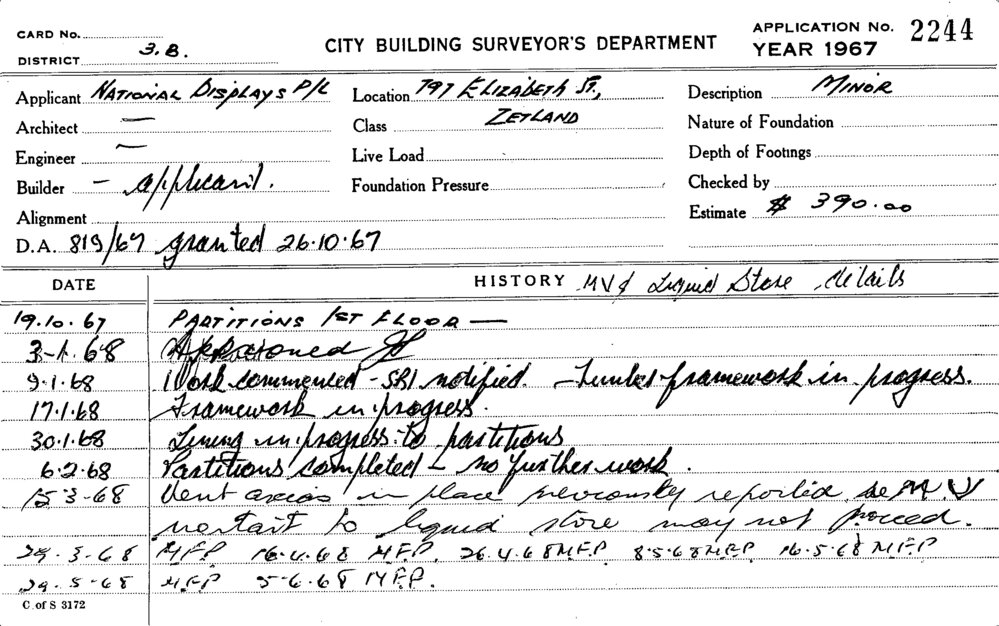 CARD No.
DISTRICT 3.B.
CITY BUILDING SURVEYOR'S DEPARTMENT
APPLICATION No. 2244
YEAR 1967
Applicant NATIONAL DISPLAYS P/L
Location 797 ELIZABETH ST.,
Description MINOR
Architect —
Class ZETLAND
Nature of Foundation
Engineer —
Live Load
Depth of Footings
Builder — applicant.
Foundation Pressure
Checked by
Alignment
Estimate $ 390.00
D.A. 819/67 granted 26.10.67
DATE
HISTORY MV & Liquid Store details
19.10.67 PARTITIONS 1ST FLOOR —
3-1.68
9.1.68 Work commenced - SRI notified. - Timber framework in progress.
17.1.68 Framework in progress.
30.1.68 Lining in progress to partitions
6.2.68 Partitions completed - no further work.
15.3-68 Vent axias in place previously reported
no start to liquid store may not proceed.
29.3-68 MFP 16.4.68 MFP. 26.4.68 MFP 8.5.68 MFP 16.5.68 MFP
29.5-68 MFP 5-6.68 MFP.
C. of S 3172